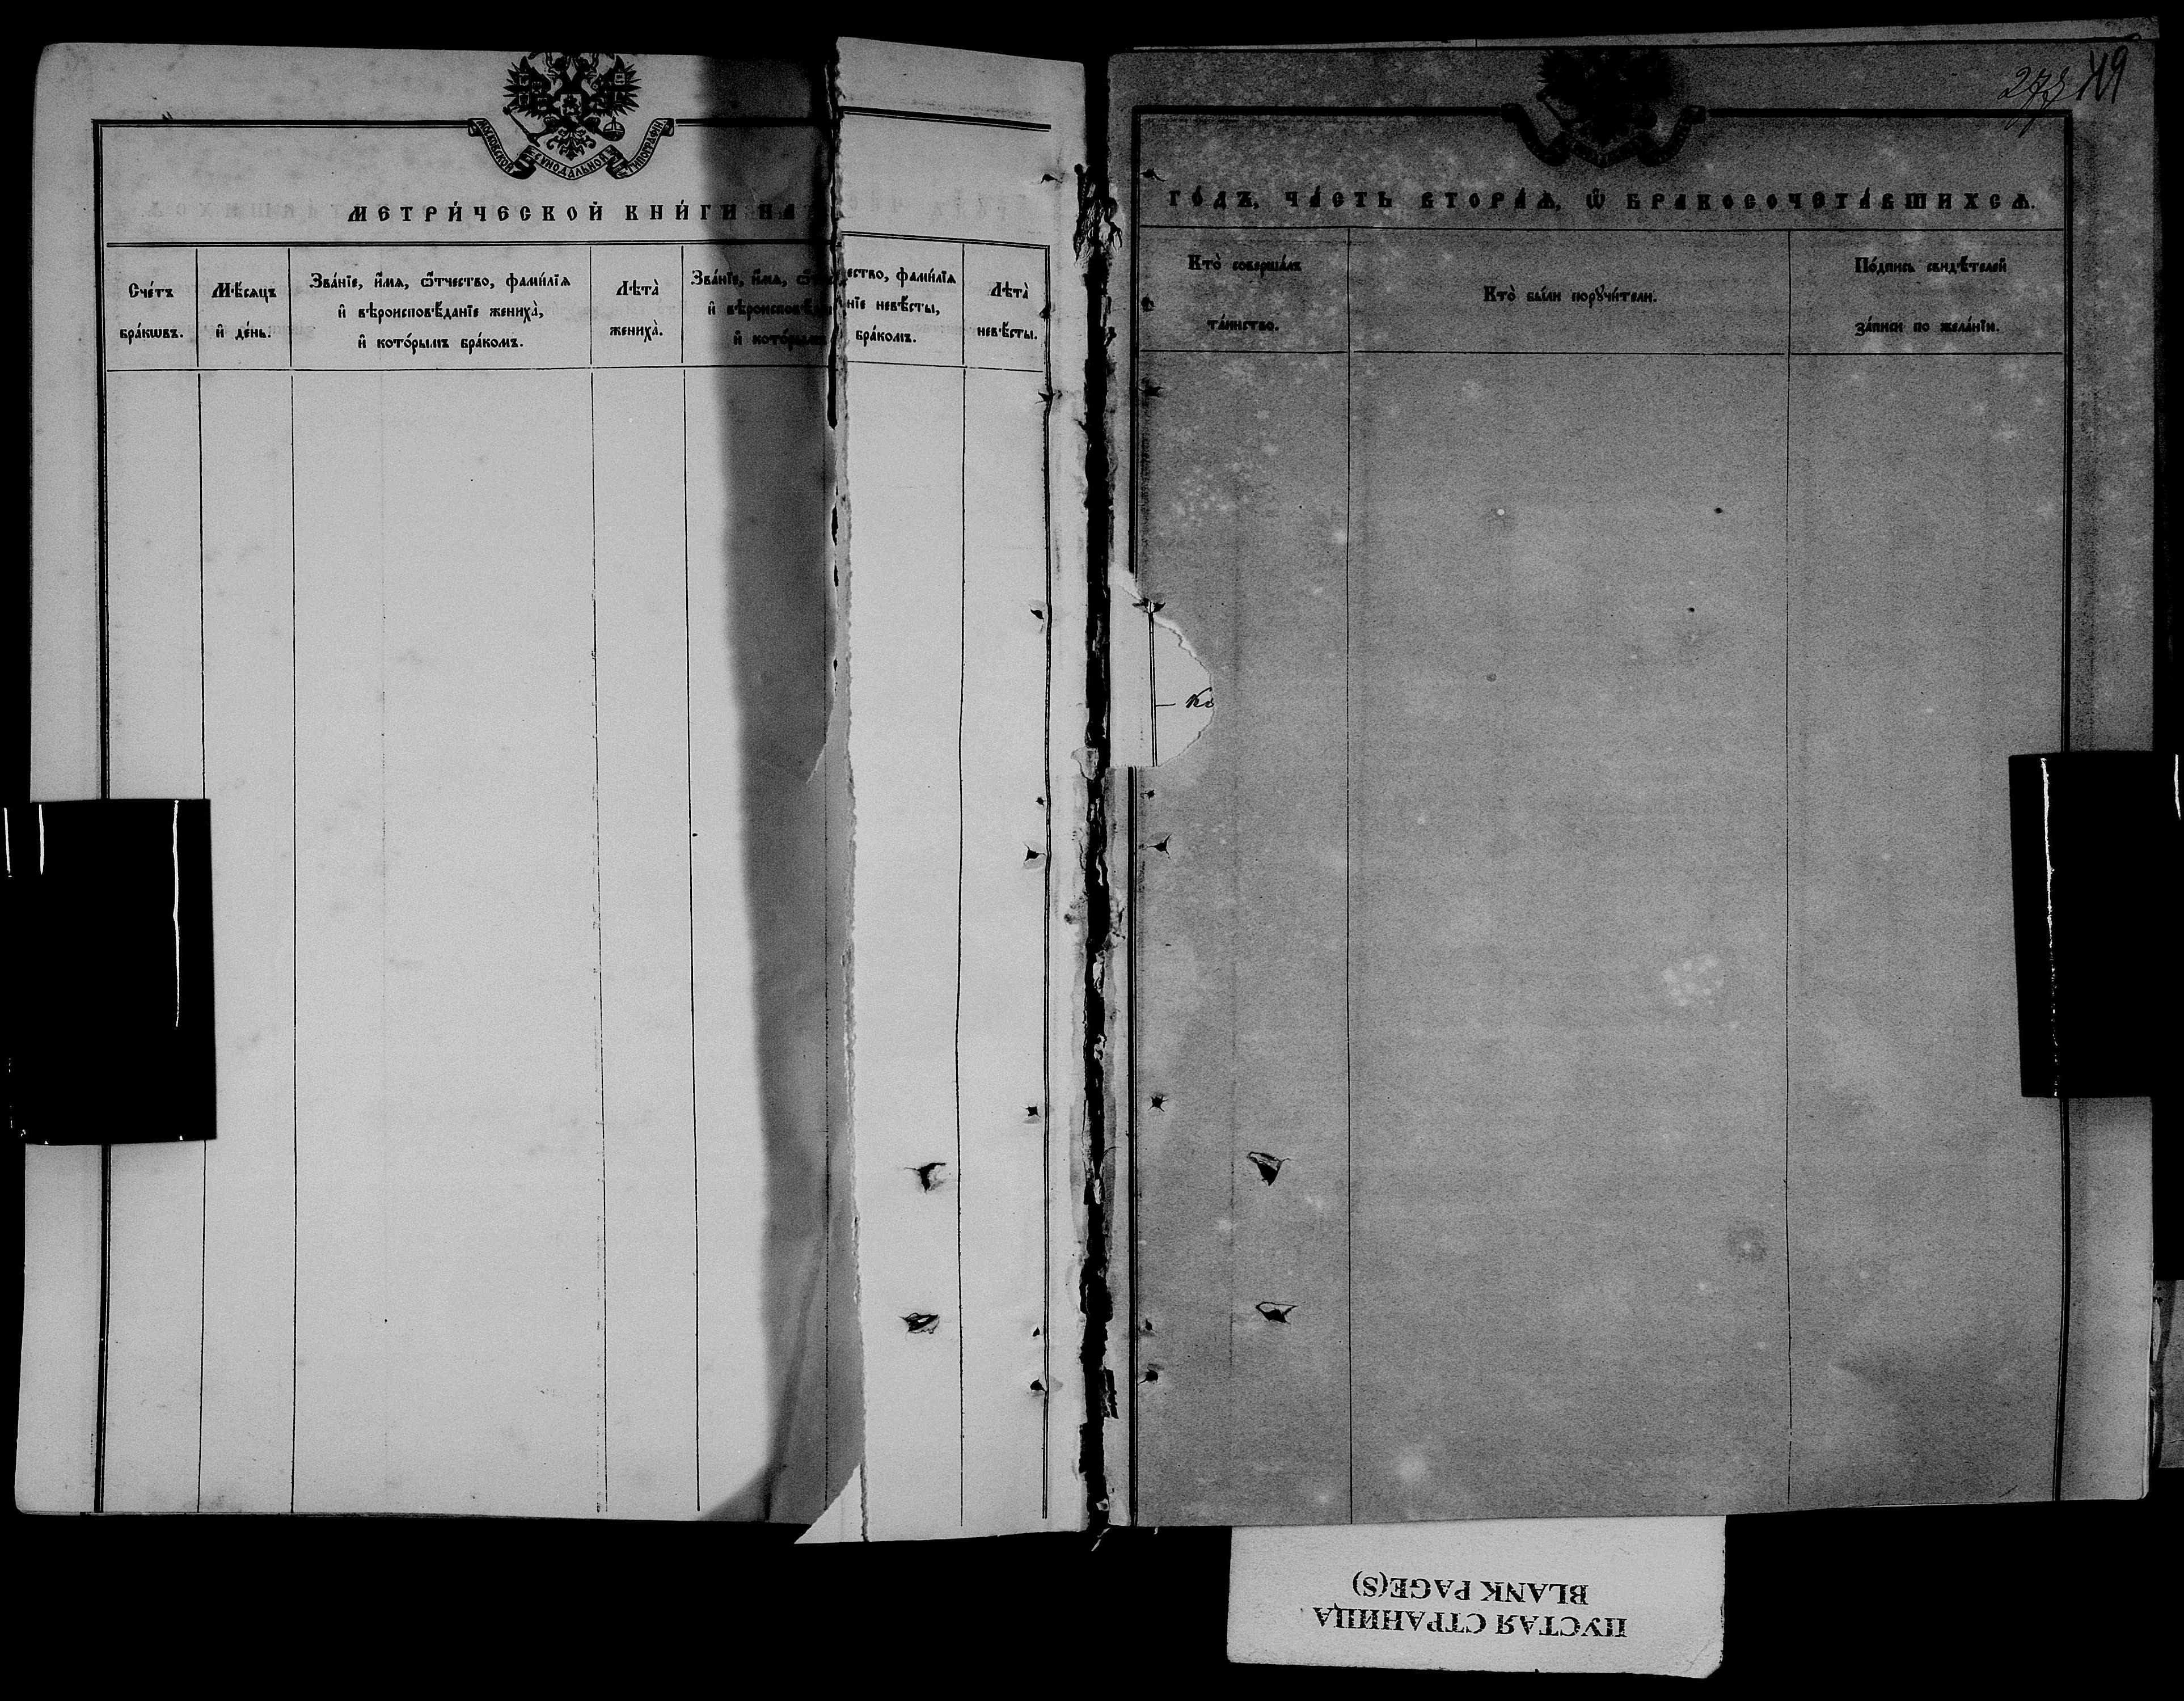 МОСКОВСКОЙ СѴНОДАЛЬНОЙ ТИПОГРАФІИ
МЕТРИ́ЧЕСКОЙ КНИ́ГИ НА
Сче́тъ
бра́кѡвъ.
Мѣ́сяцъ
и҆ де́нь.
Зва́нїе, и҆́мя, ѻ҆́тчество, фами́лїя
и҆ вѣроисповѣ́данїе жениха̀,
и҆ кото́рымъ бра́комъ.
Лѣта̀
жениха̀.
Зва́нїе, и҆́мя, ѻ҆́тчество, фами́лїя
и҆ вѣроисповѣ́данїе невѣ́сты,
и҆ кото́рымъ бра́комъ.
Лѣта̀
невѣ́сты.
49
ГО́ДЪ, ЧА́СТЬ ВТОРА́Ѧ, Ѡ҆ БРАКОСОЧЕТА́ВШИХСѦ.
Кто̀ соверша́лъ
та́инство.
Кто̀ бы́ли порꙋчи́тели.
По́дпись свидѣ́телей
за́писи по жела́нїю.
ПУСТАЯ СТРАНИЦА
BLANK PAGE(S)